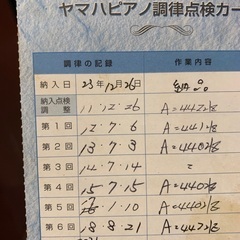 ヤマハピアノ調律点検カー
調律の記録 作業内容
納入日 23年12月26日 納品
納入点検調整 11.12.26 A=442㎐
第1回 12.7.6 A=441㎐
第2回 13.7.3 A=440㎐
第3回 14.7.14 〃
第4回 15.7.15 A=440㎐
第5回 A=440㎐
第6回 18.8.21 A=